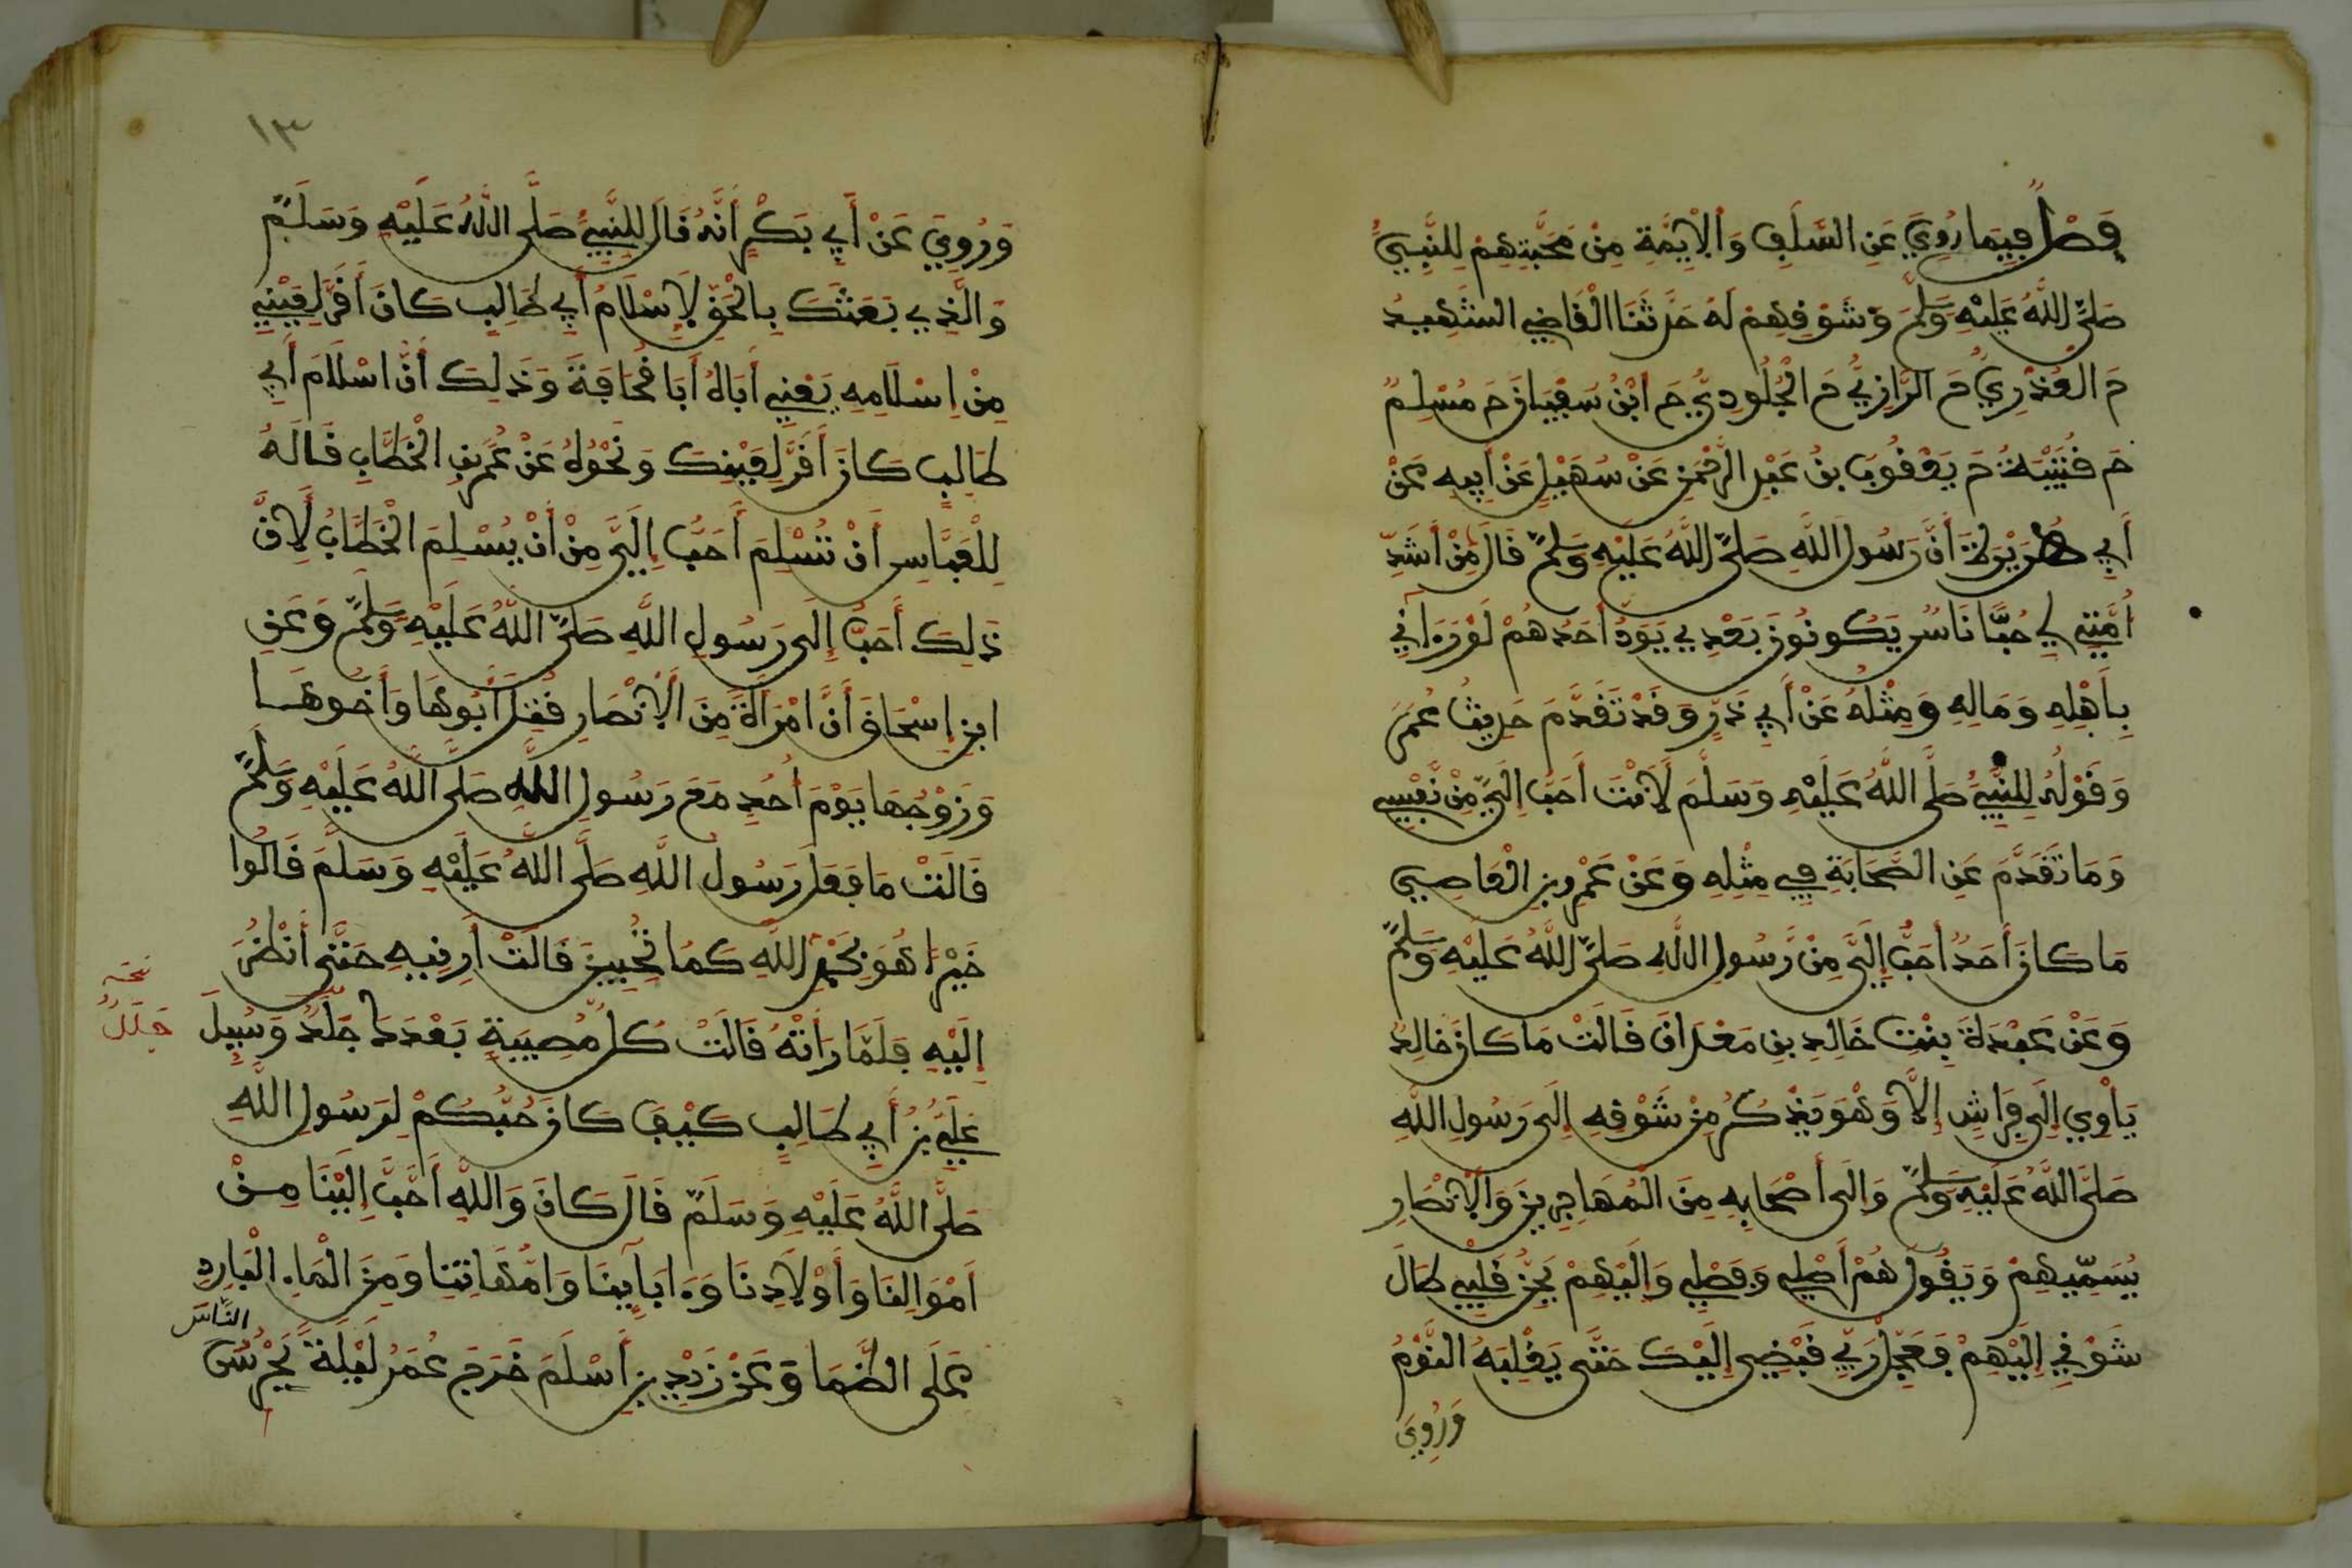 فَصْلٌ فِيمَا رُوِيَ عَنِ السَّلَفِ وَالْأَئِمَّةِ مِنْ مَحَبَّتِهِمْ لِلنَّبِيِّ
صَلَّى اللَّهُ عَلَيْهِ وَسَلَّمَ وَشَوْقِهِمْ لَهُ حَدَّثَنَا الْقَاضِي الشَّهِيدُ
حَ الْعُذْرِيُّ حَ الرَّازِيُّ حَ الْجُلُودِيُّ حَ ابْنُ سُفْيَانَ حَ مُسْلِمٌ
حَ قُتَيْبَةُ حَ يَعْقُوبُ بْنُ عَبْدِ الرَّحْمَنِ عَنْ سُهَيْلٍ عَنْ أَبِيهِ عَنْ
أَبِي هُرَيْرَةَ أَنَّ رَسُولَ اللَّهِ صَلَّى اللَّهُ عَلَيْهِ وَسَلَّمَ قَالَ مِنْ أَشَدِّ
أُمَّتِي لِي حُبًّا نَاسٌ يَكُونُونَ بَعْدِي يَوَدُّ أَحَدُهُمْ لَوْ رَءَانِي
بِأَهْلِهِ وَمَالِهِ وَمِثْلُهُ عَنْ أَبِي ذَرٍّ وَقَدْ تَقَدَّمَ حَدِيثُ عُمَرَ
وَقَوْلُهُ لِلنَّبِيِّ صَلَّى اللَّهُ عَلَيْهِ وَسَلَّمَ لَأَنْتَ أَحَبُّ إِلَيَّ مِنْ نَفْسِي
وَمَا تَقَدَّمَ عَنِ الصَّحَابَةِ فِي مِثْلِهِ وَعَنْ عَمْرِو بْنِ الْعَاصِي
مَا كَانَ أَحَدٌ أَحَبَّ إِلَيَّ مِنْ رَسُولِ اللَّهِ صَلَّى اللَّهُ عَلَيْهِ وَسَلَّمَ
وَعَنْ عَبْدَةَ بِنْتِ خَالِدِ بْنِ مَعْدَانَ قَالَتْ مَا كَانَ خَالِدٌ
يَأْوِي إِلَى فِرَاشٍ إِلَّا وَهُوَ يَذْكُرُ مِنْ شَوْقِهِ إِلَى رَسُولِ اللَّهِ
صَلَّى اللَّهُ عَلَيْهِ وَسَلَّمَ وَإِلَى أَصْحَابِهِ مِنَ الْمُهَاجِرِينَ وَالْأَنْصَارِ
يُسَمِّيهِمْ وَيَقُولُ هُمْ أَصْلِي وَفَصْلِي وَإِلَيْهِمْ يَحِنُّ قَلْبِي طَالَ
شَوْقِي إِلَيْهِمْ فَعَجِّلْ رَبِّي قَبْضِي إِلَيْكَ حَتَّى يَغْلِبَهُ النَّوْمُ
وَرُوِيَ
١٣
وَرُوِيَ عَنْ أَبِي بَكْرٍ أَنَّهُ قَالَ لِلنَّبِيِّ صَلَّى اللَّهُ عَلَيْهِ وَسَلَّمَ
وَالَّذِي بَعَثَكَ بِالْحَقِّ لَإِسْلَامُ أَبِي طَالِبٍ كَانَ أَقَرَّ لِعَيْنِي
مِنْ إِسْلَامِهِ يَعْنِي أَبَاهُ أَبَا قُحَافَةَ وَذَلِكَ أَنَّ اسْلَامَ أَبِي
طَالِبٍ كَانَ أَقَرَّ لِعَيْنِكَ وَنَحْوُهُ عَنْ عُمَرَ بْنِ الْخَطَّابِ قَالَهُ
لِلْعَبَّاسِ أَنْ تُسْلِمَ أَحَبُّ إِلَيَّ مِنْ أَنْ يُسْلِمَ الْخَطَّابُ لِأَنَّ
ذَلِكَ أَحَبُّ إِلَى رَسُولِ اللَّهِ صَلَّى اللَّهُ عَلَيْهِ وَسَلَّمَ وَعَنِ
ابْنِ إِسْحَاقَ أَنَّ امْرَأَةً مِنَ الْأَنْصَارِ قُتِلَ أَبُوهَا وَأَخُوهَا
وَزَوْجُهَا يَوْمَ أُحُدٍ مَعَ رَسُولِ اللَّهِ صَلَّى اللَّهُ عَلَيْهِ وَسَلَّمَ
قَالَتْ مَا فَعَلَ رَسُولُ اللَّهِ صَلَّى اللَّهُ عَلَيْهِ وَسَلَّمَ قَالُوا
خَيْرًا هُوَ بِحَمْدِ اللَّهِ كَمَا تُحِبِّينَ قَالَتْ أَرِنِيهِ حَتَّى أَنْظُرَ
إِلَيْهِ فَلَمَّا رَأَتْهُ قَالَتْ كُلُّ مُصِيبَةٍ بَعْدَكَ جَلَلٌ وَسُئِلَ
نخـ
جَلَلٌ
عَلِيُّ بْنُ أَبِي طَالِبٍ كَيْفَ كَانَ حُبُّكُمْ لِرَسُولِ اللَّهِ
صَلَّى اللَّهُ عَلَيْهِ وَسَلَّمَ قَالَ كَانَ وَاللَّهِ أَحَبَّ إِلَيْنَا مِنْ
أَمْوَالِنَا وَأَوْلَادِنَا وَءَابَائِنَا وَأُمَّهَاتِنَا وَمِنَ الْمَاءِ الْبَارِدِ
عَلَى الظَّمَا وَعَنْ زَيْدِ بْنِ أَسْلَمَ خَرَجَ عُمَرُ لَيْلَةً يَحْرُسُ
النَّاسَ